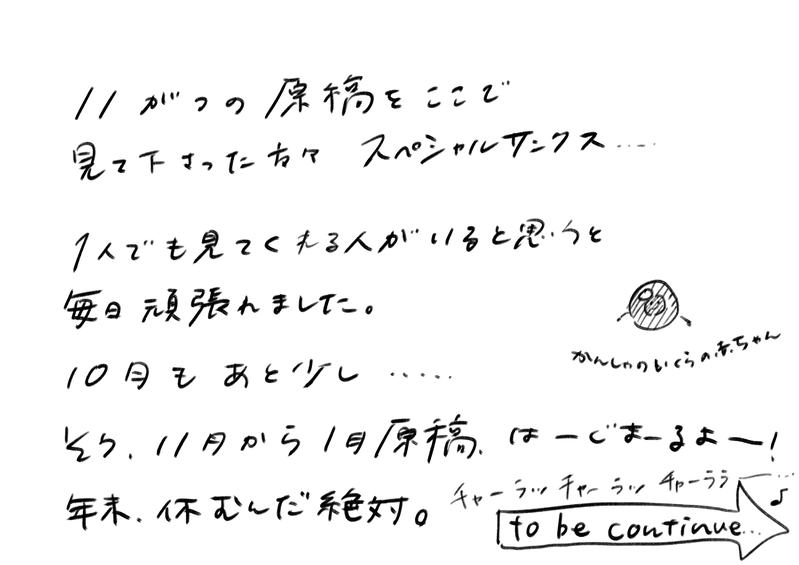 11がつの原稿をここで
見て下さった方々 スペシャルサンクス‥‥
1人でも見てくれる人がいると思うと
毎日頑張れました。
かんしゃのいくらの赤ちゃん
10月もあと少し ‥‥‥
そう、11月から1月原稿、はーじまーるよー!
チャーラッ チャーラッ チャーララ———…♪
年末、休むんだ絶対。
to be continue...